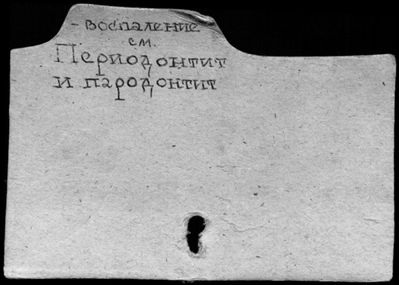 - воспаление
см.
Периодонтит
и пародонтит